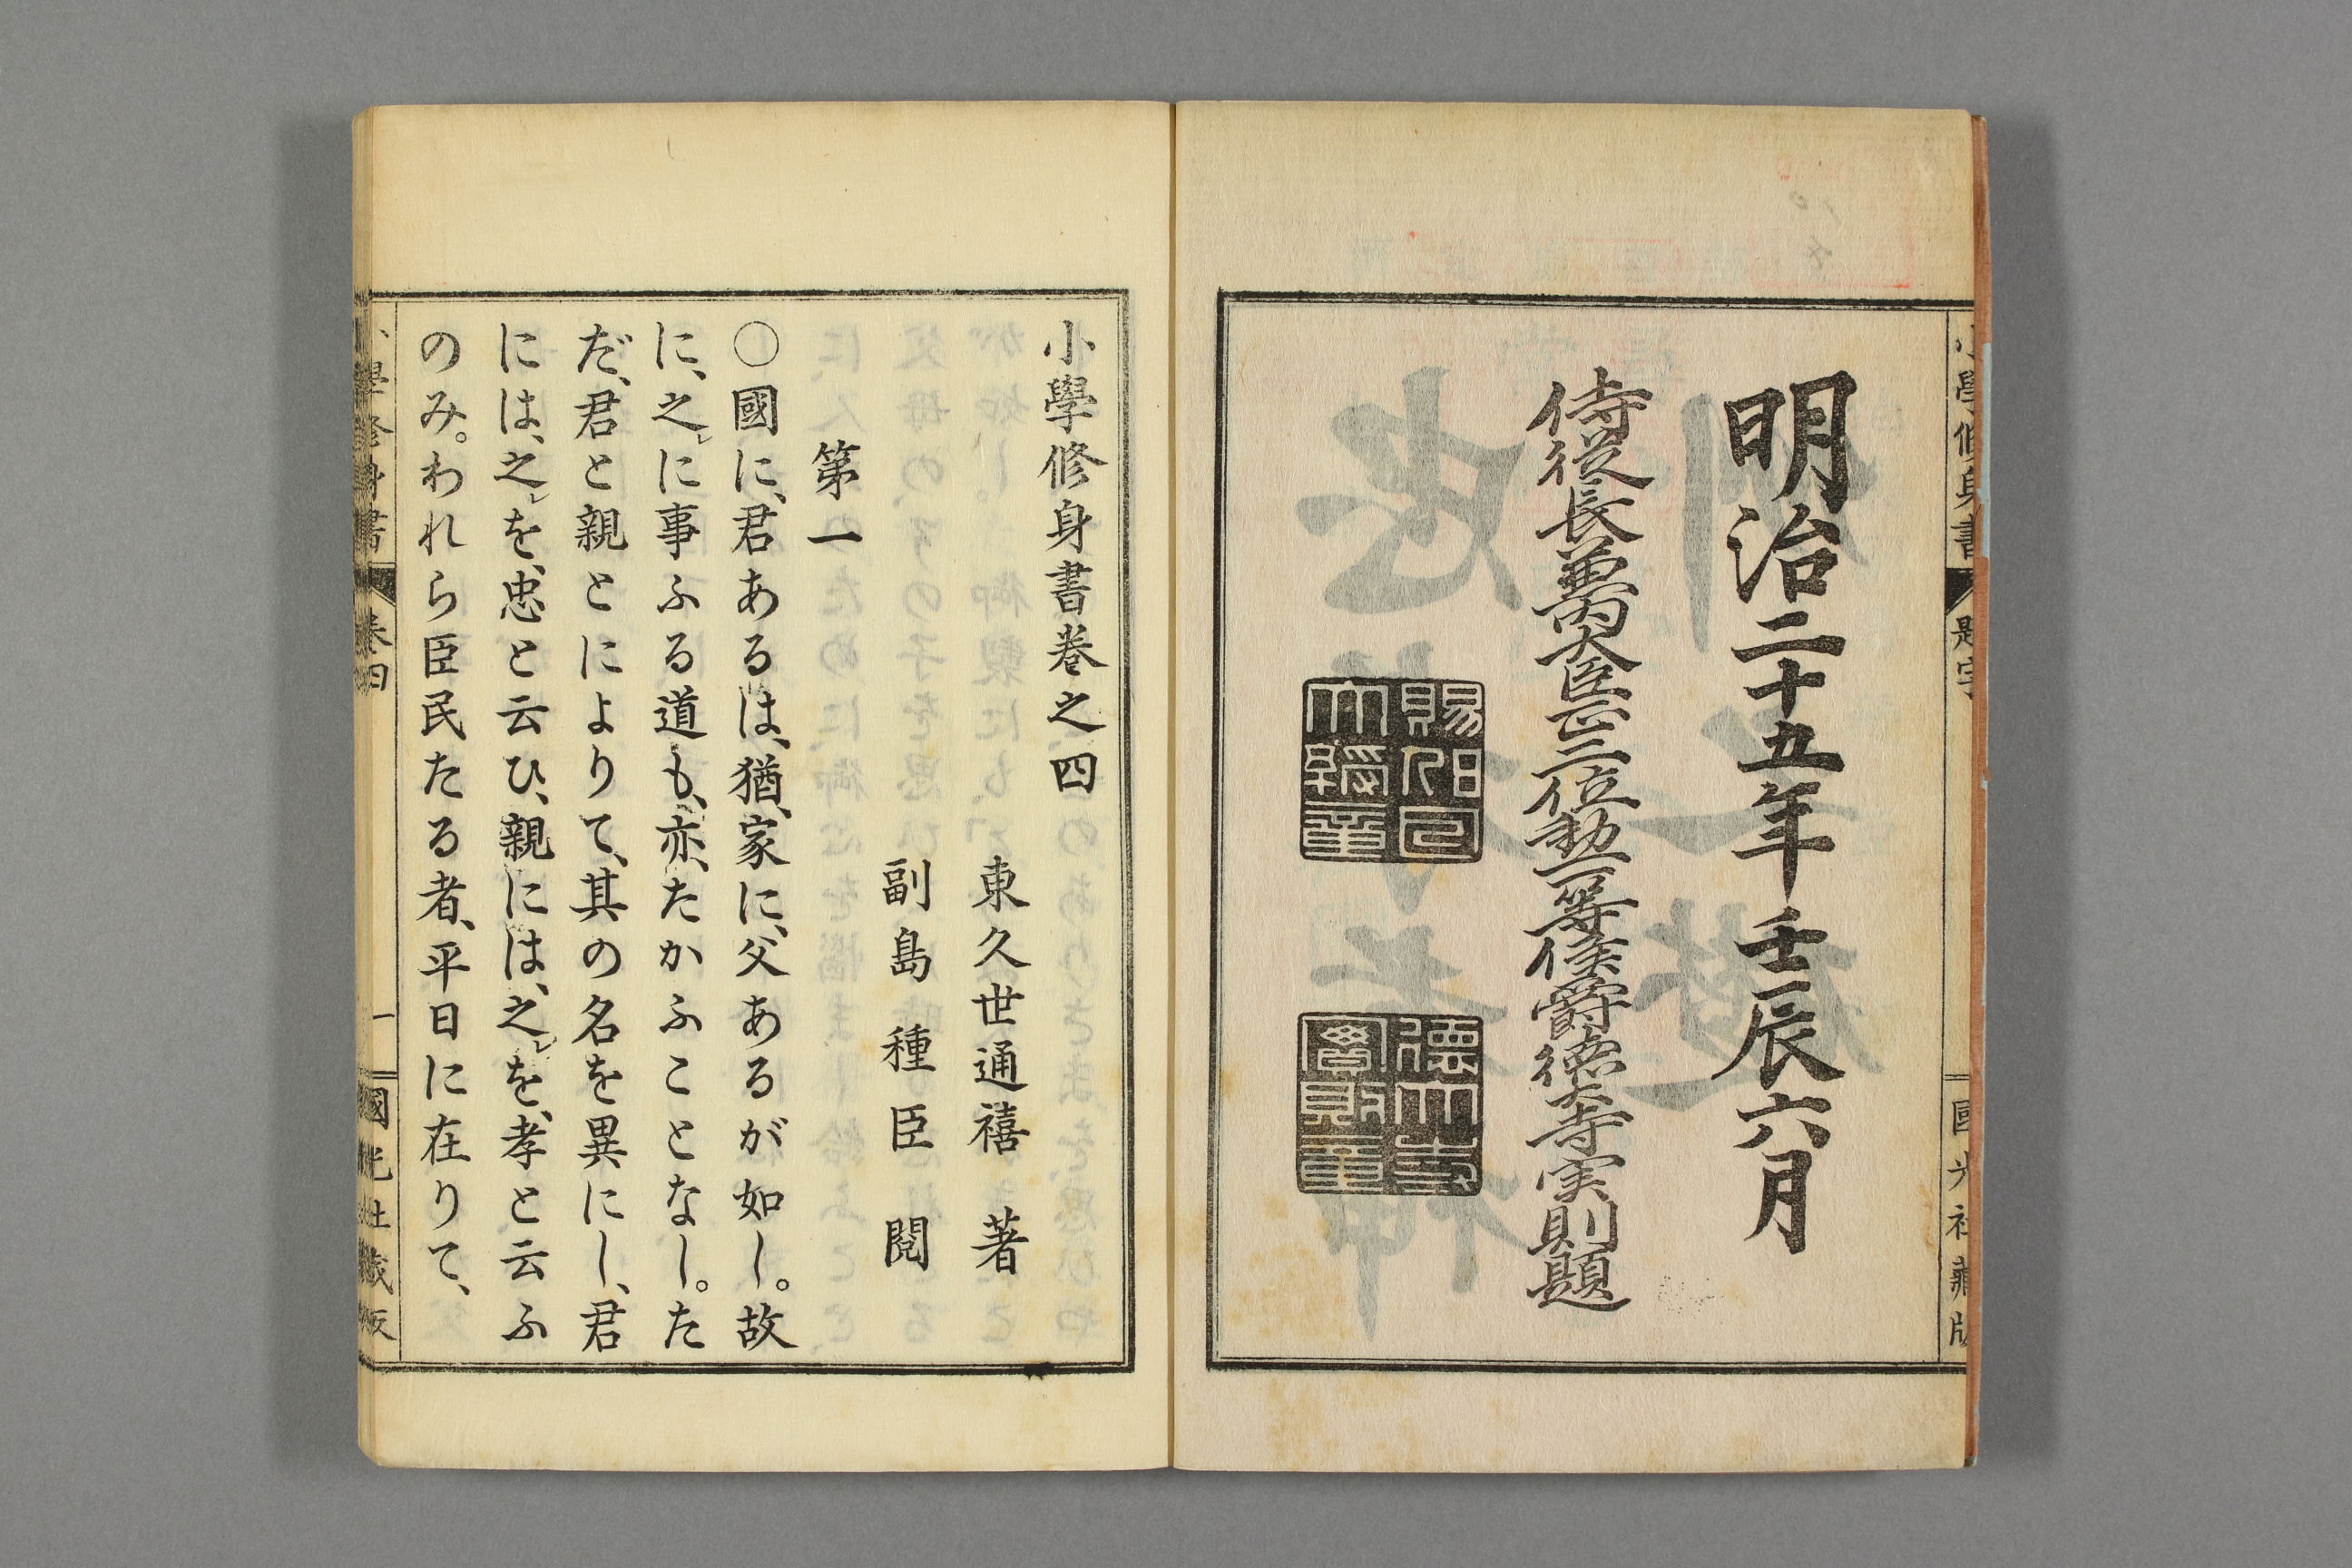 明治二十五年壬辰六月
侍從長兼内大臣正二位勲一等侯爵徳大寺実則題
小學修身書
題字
國光社藏版
小學修身書卷之四
東久世通禧 著
副島種臣 閲
第一
〇國に、君あるは、猶、家に、父あるが如し。故
に、之に事ふる道も、亦、たかふことなし。た
だ、君と親とによりて、其の名を異にし、君
には、之を、忠と云ひ、親には、之を、孝と云ふ
のみ。われら臣民たる者、平日に在りて、
小學修身書
卷四
一
國光社藏版